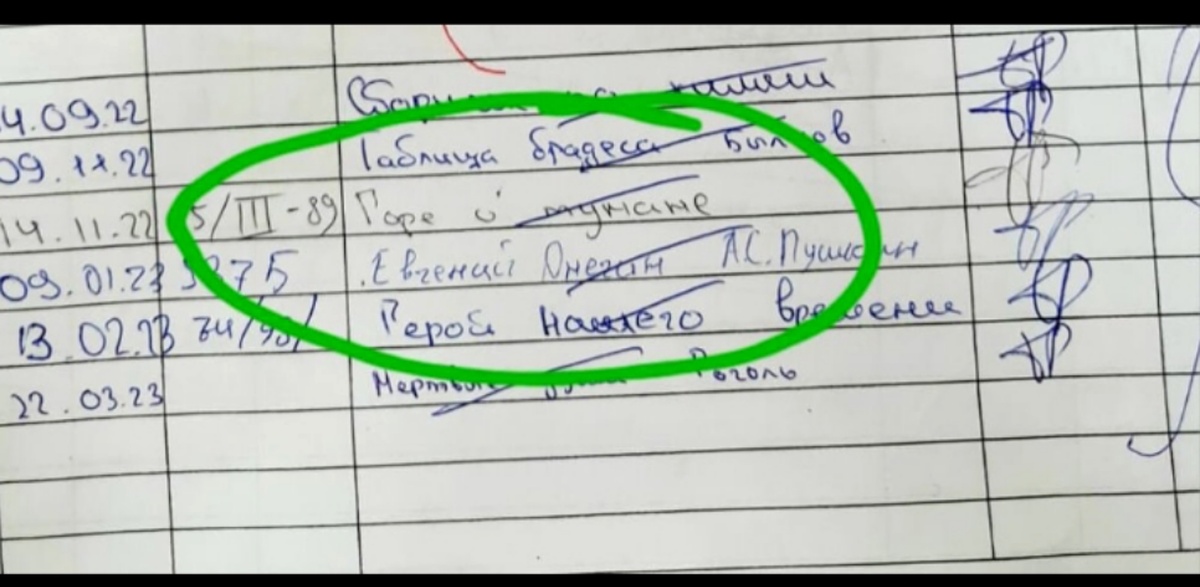 4.09.22 Сборник по химии
09.11.22 Таблица брадеса Былков
14.11.22 5/III-89 Горе о тумане
09.01.23 5275 Евгений Онегин А.С. Пушкин
13.02.23 74/98/ Герой нашего времени
22.03.23 Мертвые души Гоголь